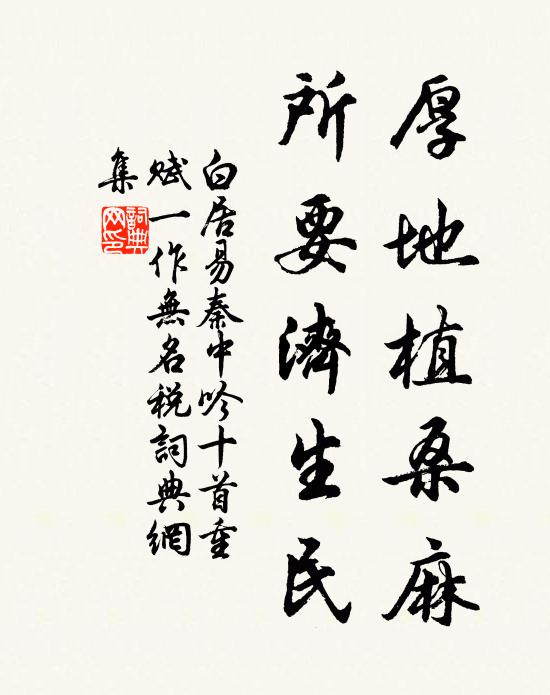 厚地植桑麻
所要濟生民
白居易秦中吟十首重
賦一作無名税詞典網
集
詞典
网印